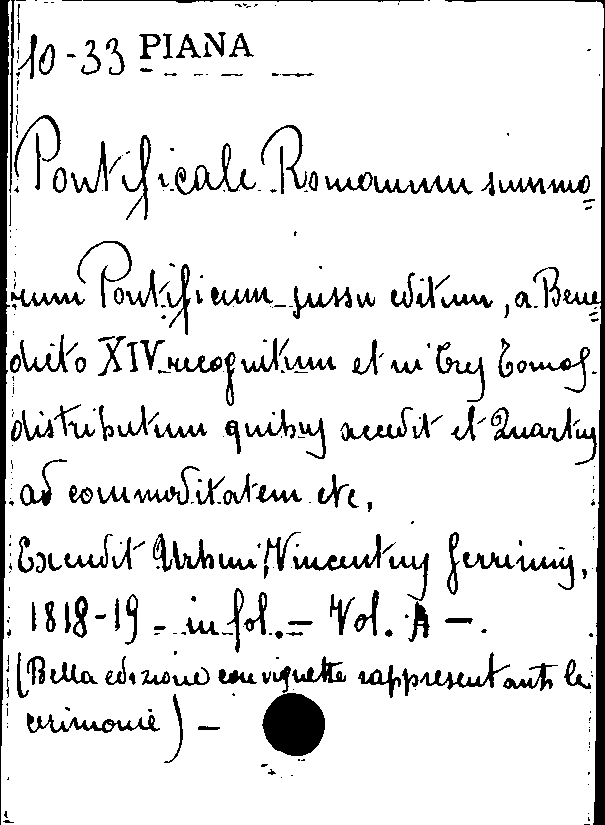 10-33 PIANA
Pontificale Romanum summo=
rum Pontificum jussu editum, a Bene=
dicto XIV recognitum et in Tres Tomos
distributum quibus accedit et Quartus
ad commoditatem etc,
Excudit Urbini, Vincentius Guerrinus,
1818-19 - in fol. - Vol. 4 -.
(Bella edizione con vignette rappresentanti le
cerimonie) -